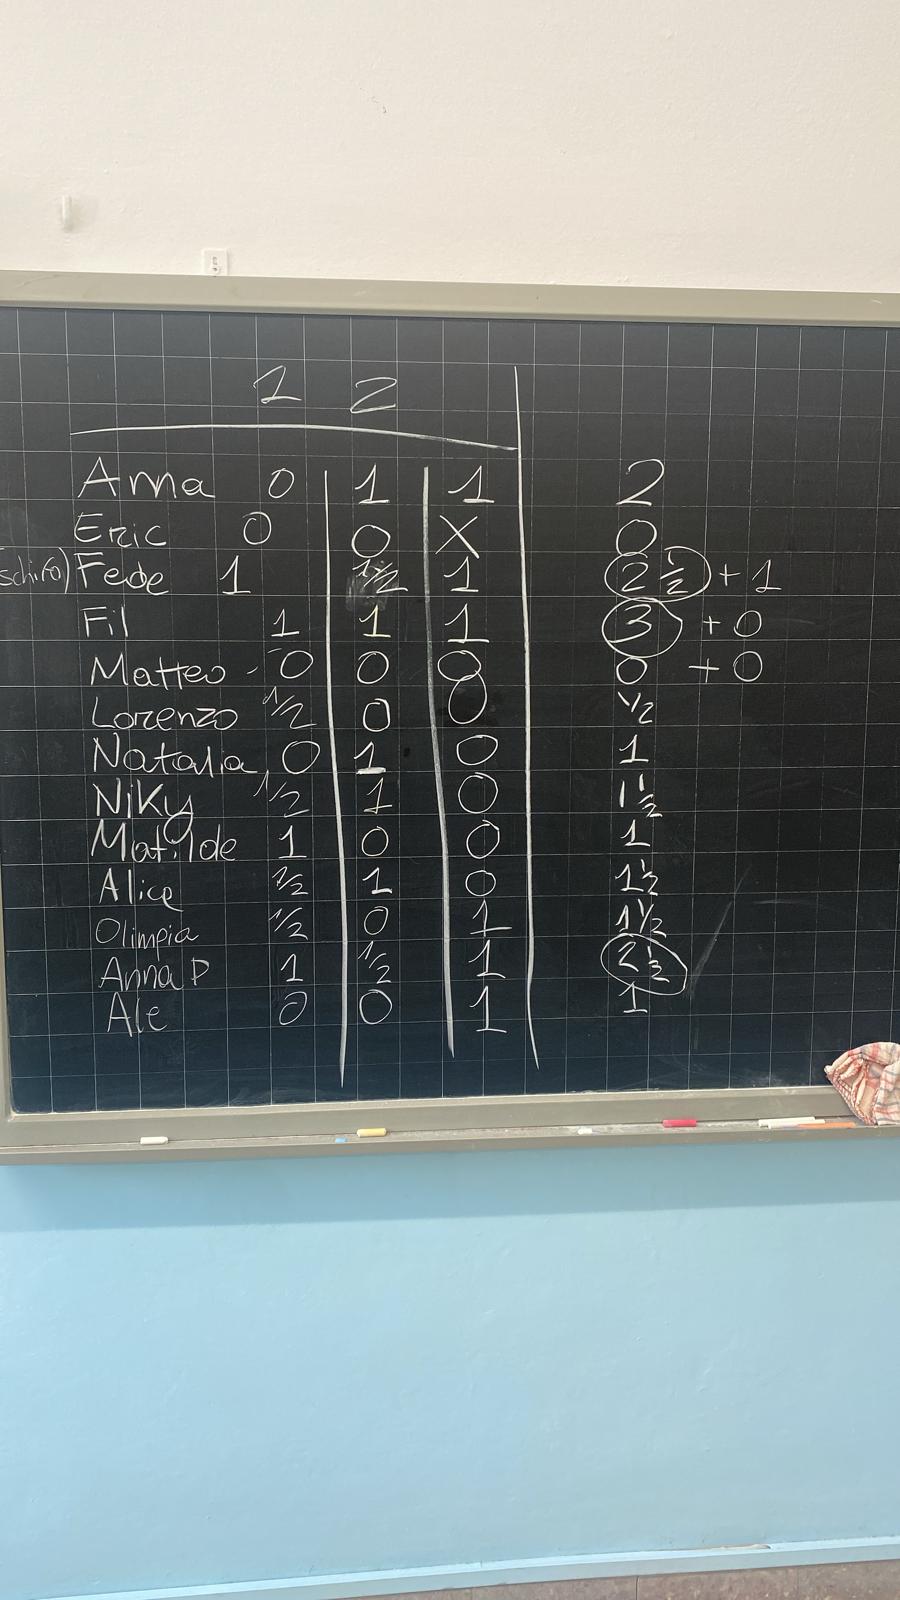 1 2
Anna 0 1 1 2
Eric 0 0 X 0
(schirò) Fede 1 1/2 1 2 1/2 + 1
Fil 1 1 1 3 + 0
Matteo 0 0 0 0 + 0
Lorenzo 1/2 0 0 1/2
Natalia 0 1 0 1
Niky 1/2 1 0 1 1/2
Matilde 1 0 0 1
Alice 1/2 1 0 1 1/2
Olimpia 1/2 0 1 1 1/2
Anna P 1 1/2 1 2 1/2
Ale 0 0 1 1